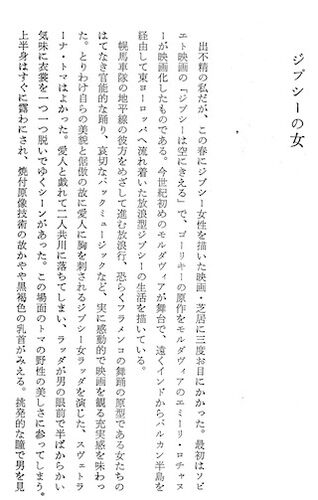 ジプシーの女
出不精の私だが、この春にジプシー女性を描いた映画・芝居に三度お目にかかった。最初はソビ
エト映画の「ジプシーは空にきえる」で、ゴーリキーの原作をモルダヴィアのエミーリ・ロチャヌ
ーが映画化したものである。今世紀初めのモルダヴィアが舞台で、遠くインドからバルカン半島を
経由して東ヨーロッパへ流れ着いた放浪型ジプシーの生活を描いている。
幌馬車隊の地平線の彼方をめざして進む放浪行、恐らくフラメンコの舞踊の原型である女たちの
はてなき官能的な踊り、哀切なバックミュージックなど、実に感動的で映画を観る充実感を味わっ
た。とりわけ自らの美貌と倨傲の故に愛人に胸を刺されるジプシー女ラッダを演じた、スヴェトラ
ーナ・トマはよかった。愛人と戯れて二人共川に落ちてしまい、ラッダが男の眼前で半ばからかい
気味に衣裳を一つ一つ脱いでゆくシーンがあった。この場面のトマの野性の美しさに参ってしまう。
上半身はすぐに露わにされ、焼付原像技術の故かやや黒褐色の乳首がみえる。挑発的な瞳で男を見